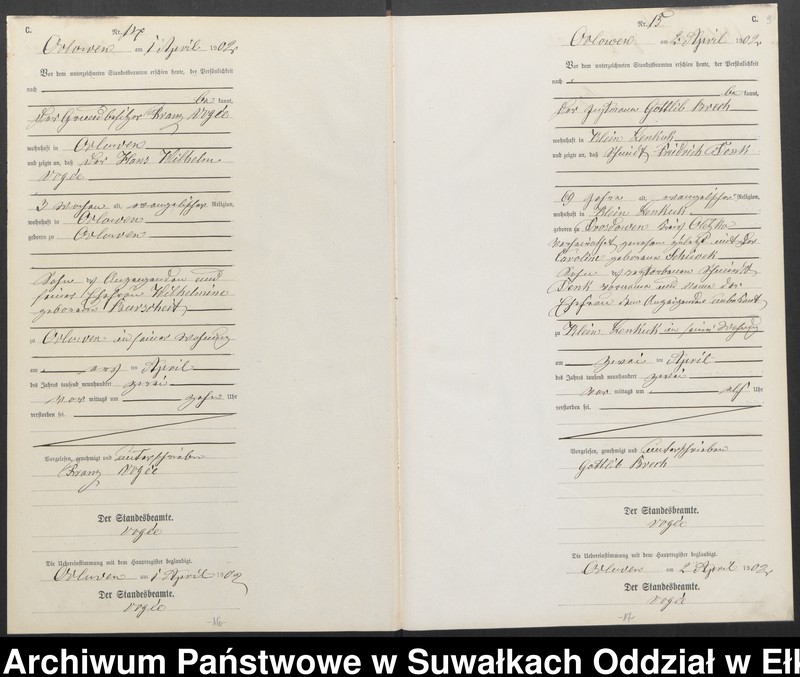 C.
Nr. 14
Orlowen am 1 April 1902
Vor dem unterzeichneten Standesbeamten erschien heute, der Persönlichkeit
nach
be kannt,
der Grundbesitzer Franz Vogée
wohnhaft in Orlowen
und zeigte an, daß der Hans Wilhelm
Vogée
3 Wochen alt, evangelischer Religion,
wohnhaft in Orlowen
geboren zu Orlowen
Sohn des Anzeigenden und
seiner Ehefrau Wilhelmine
geborene
zu Orlowen in seiner Wohnung
am April
des Jahres tausend neunhundert zwei
vor mittags um zehn Uhr
verstorben sei.
Vorgelesen, genehmigt und unterschrieben
Franz Vogée
Der Standesbeamte.
Vogée
Die Uebereinstimmung mit dem Hauptregister beglaubigt.
Orlowen am 1 April 1902
Der Standesbeamte.
Vogée
-16-
C.
Nr. 15
Orlowen am 2 April 1902
Vor dem unterzeichneten Standesbeamten erschien heute, der Persönlichkeit
nach
be kannt,
der Gottlib Brech
wohnhaft in Klein Lenkuk
und zeigte an, daß Schmidt Fridrich Tonk
69 Jahre alt, evangelischer Religion,
wohnhaft in Klein Lenkuk
geboren zu Kreis Oletzko
verheirathet gewesen zuletzt mit der
Caroline geborene
Sohn des verstorbenen Schmidt
Tonk Vorname und Name der
Ehefrau dem Anzeigenden unbekannt
zu Klein Lenkuk in seiner Wohnung
am zwei ten April
des Jahres tausend neunhundert zwei
vor mittags um elf Uhr
verstorben sei.
Vorgelesen, genehmigt und unterschrieben
Gottlib Brech
Der Standesbeamte.
Vogée
Die Uebereinstimmung mit dem Hauptregister beglaubigt.
Orlowen am 2 April 1902
Der Standesbeamte.
Vogée
-17-
Archiwum Państwowe w Suwałkach Oddział w Ełk